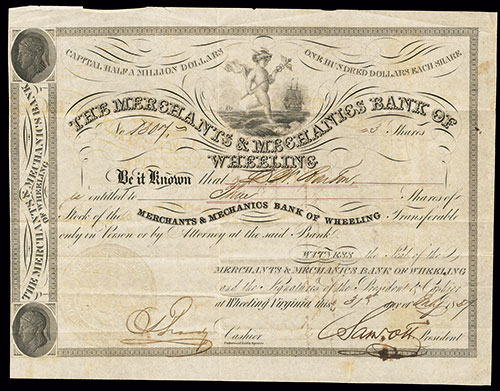 CAPITAL HALF A MILLION DOLLARS
ONE HUNDRED DOLLARS EACH SHARE
THE MERCHANTS & MECHANICS BANK OF
WHEELING
No. Shares
Be it Known that
entitled to Shares of
Stock of the MERCHANTS & MECHANICS BANK OF WHEELING Transferable
only in Person or by Attorney at the said Bank
WITNESS the Seal of the
MERCHANTS & MECHANICS BANK OF WHEELING
and the Signatures of the President & Cashier
at Wheeling Virginia this 31st day of May
Cashier President
THE MERCHANTS & MECHANICS BANK
OF WHEELING